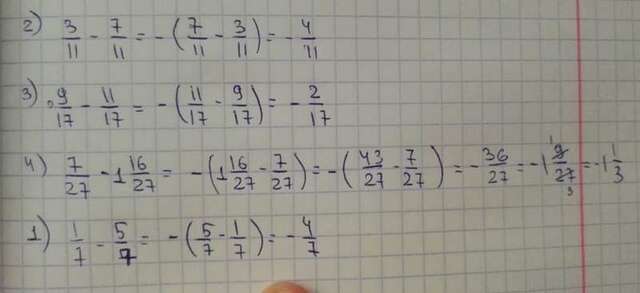 2) 3/11 - 7/11 = -(7/11 - 3/11) = -4/11
3) 9/17 - 11/17 = -(11/17 - 9/17) = -2/17
4) 7/27 - 1 16/27 = -(1 16/27 - 7/27) = -(43/27 - 7/27) = -36/27 = -1 9/27 = -1 1/3
1) 1/7 - 5/7 = -(5/7 - 1/7) = -4/7